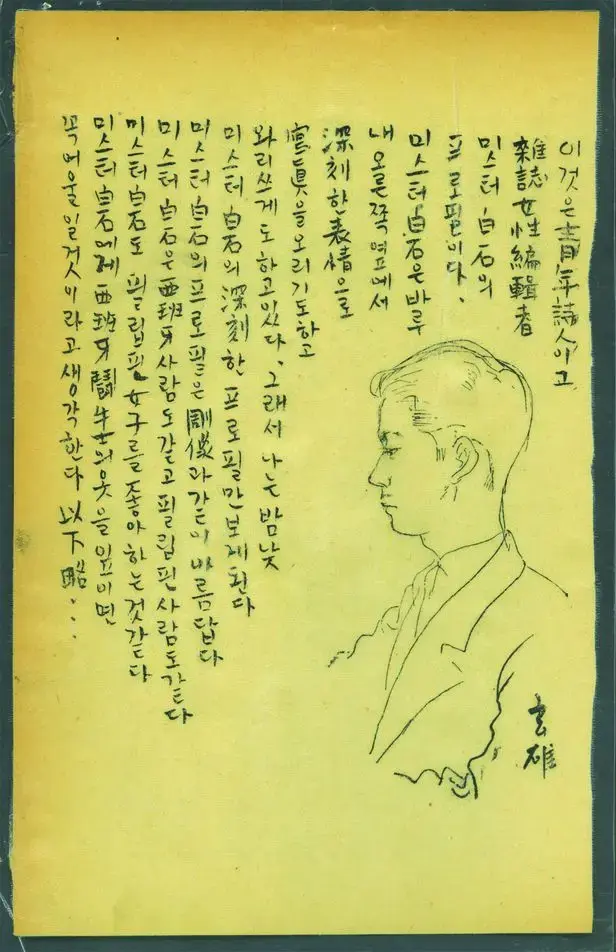 이것은 靑年詩人이고
雜誌女性編輯者
미스터 白石의
프로필이다.
미스터 白石은 바루
내 오른쪽 옆에서
深刻한 表情으로
寫眞을 오리기도 하고
와리쓰게도 하고 있다. 그래서 나는 밤낮
미스터 白石의 深刻한 프로필만 보게 된다
미스터 白石의 프로필은 彫像과 같이 아름답다
미스터 白石은 西班牙사람도 같고 필립핀 사람도 같다
미스터 白石도 필립핀 女子를 좋아하는 것 같다
미스터 白石에게 西班牙鬪牛士의 옷을 입히면
꼭 어울일 것이라고 생각한다 以下略...
玄雄